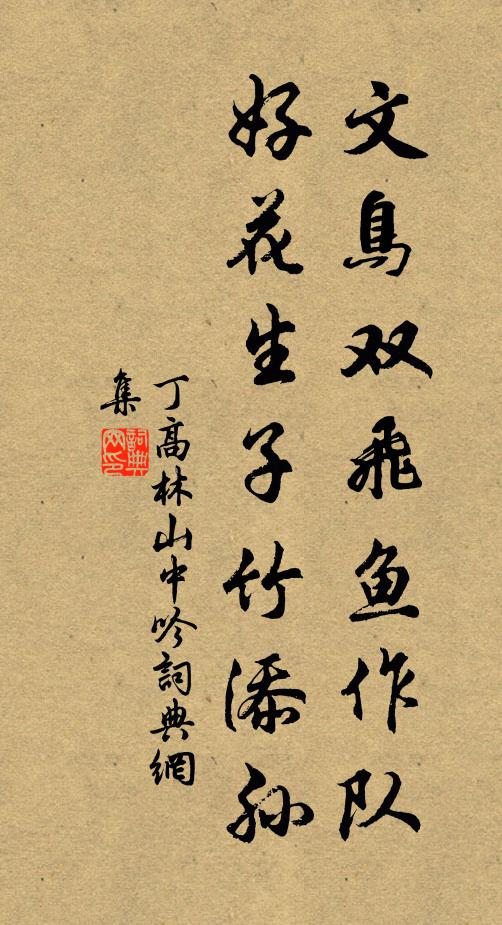 文鳥双飛鱼作队
好花生子竹添孙
丁高林山中吟詞典網
集
詞典
网印